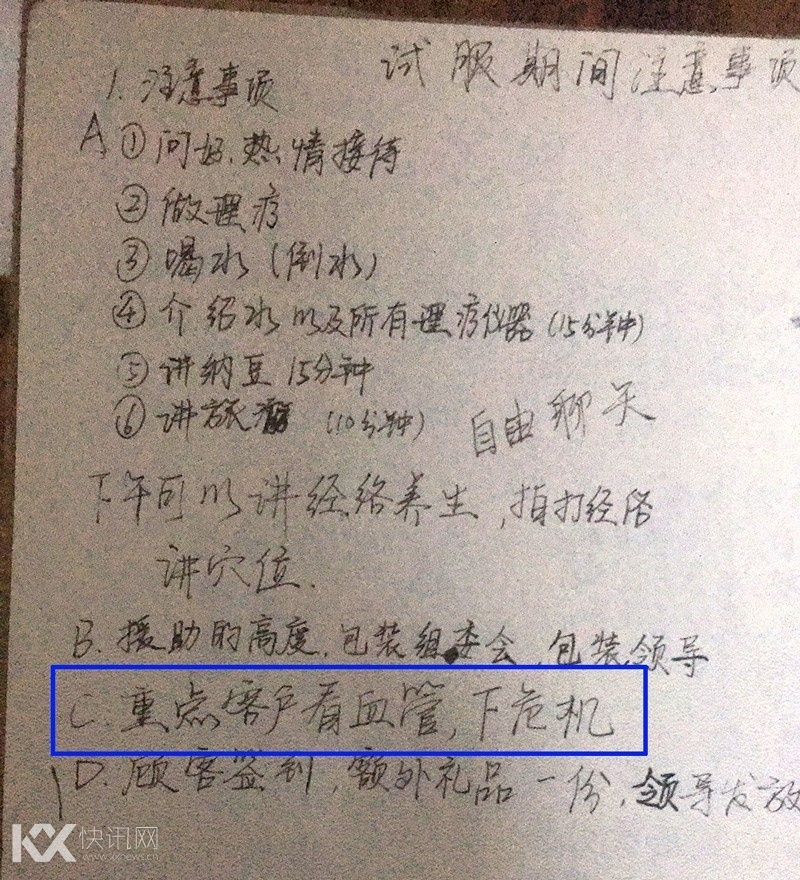 试服期间注意事项
1. 注意事项
A ①问好,热情接待
②做理疗
③喝水(倒水)
④介绍水以及所有理疗仪器(15分钟)
⑤讲纳豆15分钟
⑥讲旅游(10分钟) 自由聊天
下午可以讲经络养生,拍打经络
讲穴位.
B. 援助的高度,包装组委会,包装领导
C. 重点客户看血管,下危机
D. 顾客签到,额外礼品一份,领导发放
KX快讯网
www.kxnews.cn